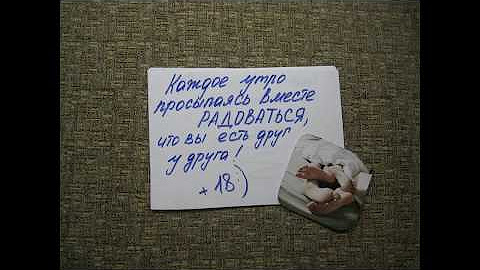 Каждое утро
просыпаясь вместе
РАДОВАТЬСЯ,
что вы есть друг
у друга!
+ 18:)